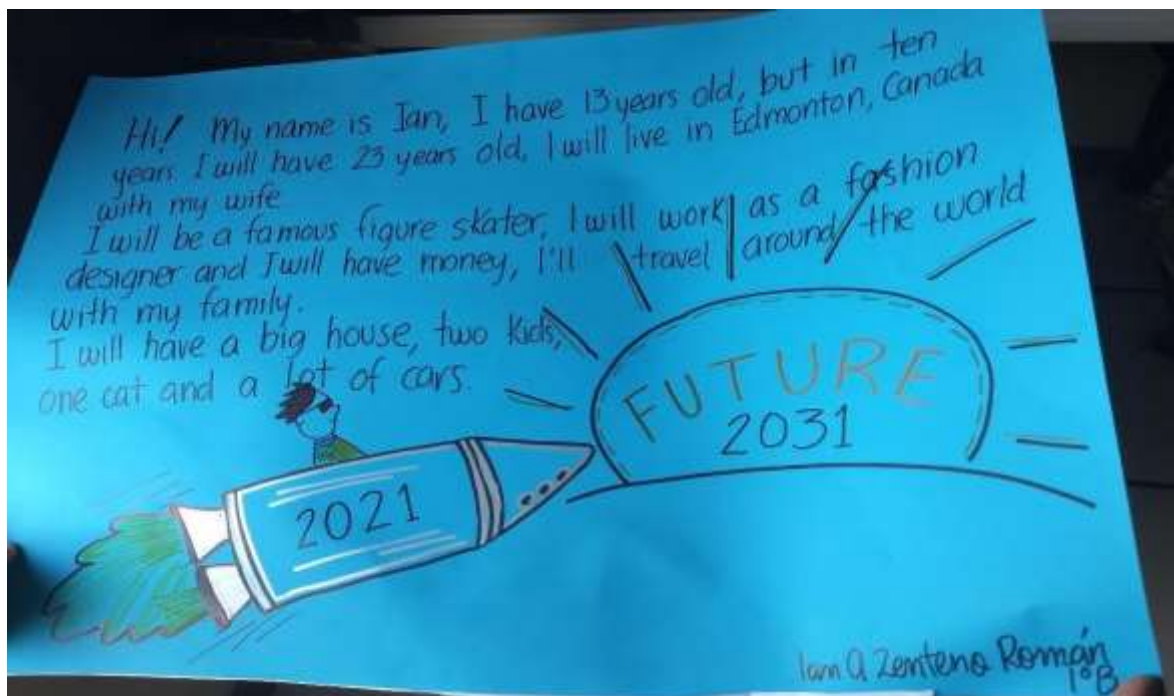 Hi! My name is Ian, I have 13 years old, but in ten
years I will have 23 years old, I will live in Edmonton, Canada
with my wife
I will be a famous figure skater, I will work as a fashion
designer and I will have money, I'll travel around the world
with my family.
I will have a big house, two kids,
one cat and a lot of cars.
FUTURE
2031
2021
Ian A Zenteno Román
1°B